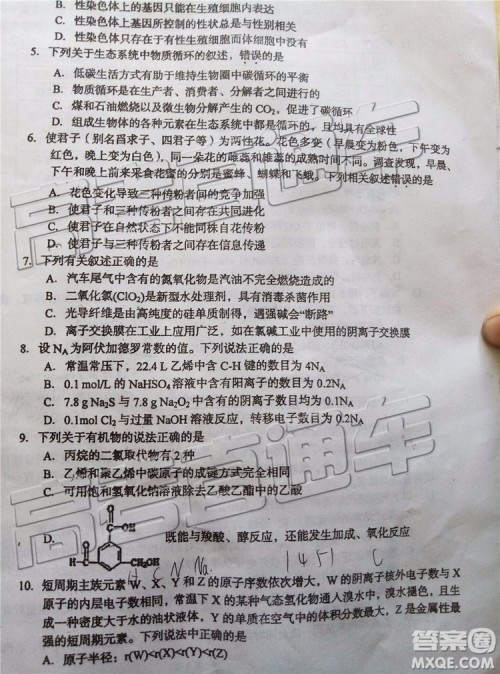 B. 性染色体上的基因只能在生殖细胞中表达
C. 性染色体上基因所控制的性状总是与性别相关
D. 性染色体只存在于有性生殖细胞而体细胞中没有
5. 下列关于生态系统中物质循环的叙述，错误的是
A. 低碳生活方式有助于维持生物圈中碳循环的平衡
B. 物质循环是在生产者、消费者、分解者之间进行的
C. 煤和石油燃烧以及微生物分解产生的 CO₂，促进了碳循环
D. 组成生物体的各种元素在生态系统中都是循环的，且均具有全球性
6. 使君子（别名舀求子、四君子等）为两性花，花色多变（早晨变为粉色，下午变为
红色，晚上变为白色），同一朵花的雌蕊和雄蕊的成熟时间不同。调查发现，早晨、
下午和晚上前来采食花蜜的分别是蜜蜂、蝴蝶和飞蛾。下列相关叙述错误的是
A. 花色变化导致三种传粉者间的竞争加强
B. 使君子和三种传粉者之间存在共同进化
C. 使君子在自然状态下不能同株自花传粉
D. 使君子与三种传粉者之间存在信息传递
7. 下列有关叙述正确的是
A. 汽车尾气中含有的氮氧化物是汽油不完全燃烧造成的
B. 二氧化氯(ClO₂)是新型水处理剂，具有消毒杀菌作用
C. 光导纤维是由高纯度的硅单质制得，遇强碱会“断路”
D. 离子交换膜在工业上应用广泛，如在氯碱工业中使用的阴离子交换膜
8. 设 Nᴀ 为阿伏加德罗常数的值。下列说法正确的是
A. 常温常压下，22.4 L 乙烯中含 C-H 键的数目为 4Nᴀ
B. 0.1 mol/L 的 NaHSO₄ 溶液中含有阳离子的数目为 0.2Nᴀ
C. 7.8 g Na₂S 与 7.8 g Na₂O₂ 中含有的阴离子数目均为 0.1Nᴀ
D. 0.1mol Cl₂ 与过量 NaOH 溶液反应，转移电子数目为 0.2Nᴀ
9. 下列关于有机物的说法正确的是
A. 丙烷的二氯取代物有 2 种
B. 乙烯和聚乙烯中碳原子的成键方式完全相同
C. 可用饱和氢氧化钠溶液除去乙酸乙酯中的乙酸
D. 既能与羧酸、醇反应，还能发生加成、氧化反应
10. 短周期主族元素 W、X、Y 和 Z 的原子序数依次增大，W 的阴离子核外电子数与 X
原子的内层电子数相同，常温下 X 的某种气态氢化物通入溴水中，溴水褪色，且生
成一种密度大于水的油状液体，Y 的单质在空气中的体积分数最大，Z 是金属性最
强的短周期元素。下列说法中正确的是
A. 原子半径：r(W)<r(X)<r(Y)<r(Z)
高考直通车
高考直通车
答案圈
MXQE.COM